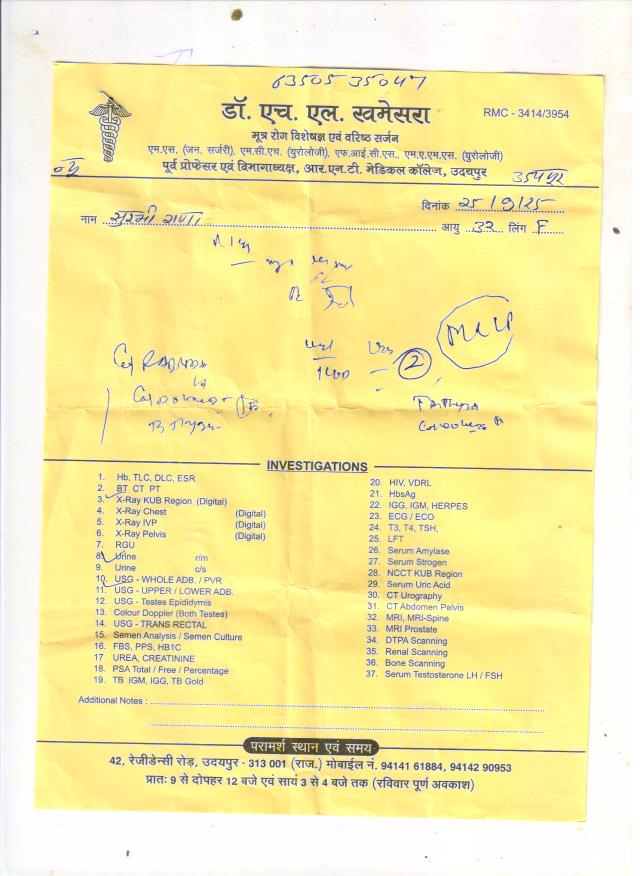 63505 35047
डॉ. एच. एल. खमेसरा
RMC - 3414/3954
मूत्र रोग विशेषज्ञ एवं वरिष्ठ सर्जन
एम.एस. (जन. सर्जरी), एम.सी.एच. (युरोलोजी), एफ.आई.सी.एस., एम.ए.एम.एस. (युरोलोजी)
पूर्व प्रोफेसर एवं विभागाध्यक्ष, आर.एन.टी. मेडिकल कॉलेज, उदयपुर
दिनांक 25/9/25
नाम आयु 32 लिंग F
2
INVESTIGATIONS
1. Hb, TLC, DLC, ESR
2. BT CT PT
3. X-Ray KUB Region (Digital)
4. X-Ray Chest (Digital)
5. X-Ray IVP (Digital)
6. X-Ray Pelvis (Digital)
7. RGU
8. Urine r/m
9. Urine c/s
10. USG - WHOLE ADB. / PVR
11. USG - UPPER / LOWER ADB.
12. USG - Testes Epididymis
13. Colour Doppler (Both Testes)
14. USG - TRANS RECTAL
15. Semen Analysis / Semen Culture
16. FBS, PPS, HB1C
17 UREA, CREATININE
18. PSA Total / Free / Percentage
19. TB IGM, IGG, TB Gold
20. HIV, VDRL
21. HbsAg
22. IGG, IGM, HERPES
23. ECG / ECO
24. T3, T4, TSH,
25. LFT
26. Serum Amylase
27. Serum Strogen
28. NCCT KUB Region
29. Serum Uric Acid
30. CT Urography
31. CT Abdomen Pelvis
32. MRI, MRI-Spine
33. MRI Prostate
34. DTPA Scanning
35. Renal Scanning
36. Bone Scanning
37. Serum Testosterone LH / FSH
Additional Notes :
परामर्श स्थान एवं समय
42, रेजीडेन्सी रोड़, उदयपुर - 313 001 (राज.) मोबाईल नं. 94141 61884, 94142 90953
प्रातः 9 से दोपहर 12 बजे एवं सायं 3 से 4 बजे तक (रविवार पूर्ण अवकाश)